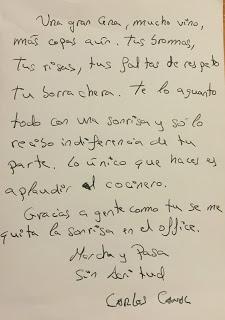 Una gran cena, mucho vino,
más copas aún. tus bromas,
tus risas, tus faltas de respeto
tu borrachera. Te lo aguanto
todo con una sonrisa y sólo
recibo indiferencia de tu
parte. Lo único que haces es
aplaudir al cocinero.
Gracias a gente como tu se me
quita la sonrisa en el office.
Marcha y Pasa
Sin Acritud
CARLOS